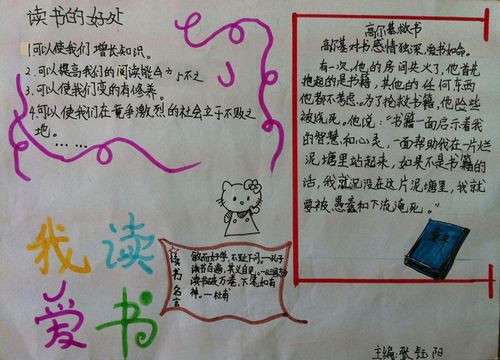 读书的好处
1.可以使我们增长知识。
2.可以提高我们的阅读能力
3.可以使我们变的有修养。
4.可以使我们在竟争激烈的社会立于不败之
地。
……
高尔基救书
高尔基对书感情独深,爱书如命。
有一次,他的房间失火了,他首先
抱起的是书籍,其他的任何东西
他都不考虑。为了抢救书籍,他险些
被烧死。他说:“书籍一面启示着我
的智慧和心灵,一面帮助我在一片烂
泥塘里站起来,如果不是书籍的
话,我就沉没在这片泥塘里,我就
要被愚蠢和下流淹死。”
我读
爱书
读书名言
敏而好学,不耻下问。—孔子
读书百遍,其义自见。
读书破万卷,下笔如有
神。—杜甫
主编:张钰阳